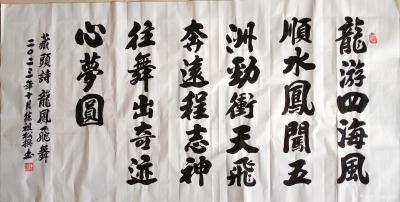 龍游四海風
順水鳳闖五
洲勁衝天飛
奔遠程志神
往舞出奇近
心夢圓
藏頭詩龍鳳飛舞
二〇二三年十月熊祖松撰書